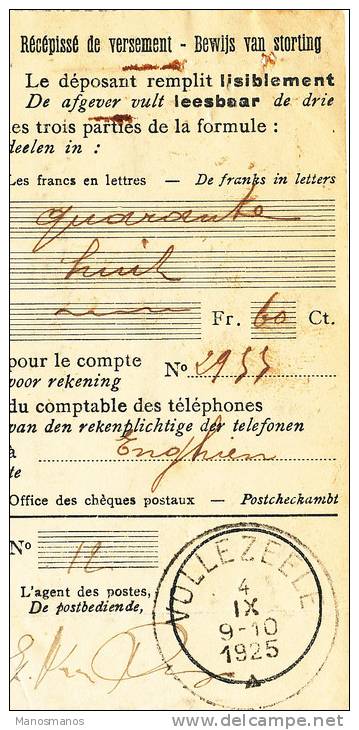 Récépissé de versement - Bewijs van storting
Le déposant remplit lisiblement
De afgever vult leesbaar de drie
les trois parties de la formule :
deelen in :
Les francs en lettres — De franks in letters
quarante
huit
Fr. 60 Ct.
pour le compte
voor rekening
No 2955
du comptable des téléphones
van den rekenplichtige der telefonen
à Enghien
te
Office des chèques postaux — Postcheckambt
No 12
L'agent des postes,
De postbediende,
VOLLEZEELE
4
IX
9-10
1925
Manosmanos
www.delcampe.net